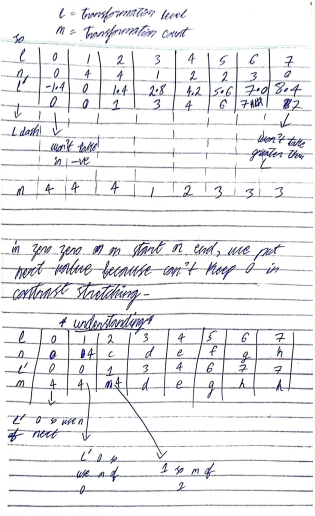 L = transformation level
m = transformation count
so
l 0 1 2 3 4 5 6 7
n 0 4 4 1 2 2 3 0
l' -1.4 0 1.4 2.8 4.2 5.6 7.0 8.4
0 0 1 3 4 6 7 82
L dash won't take in -ve
won't take greater than
m 4 4 4 1 2 3 3 3
in zero zero on start or end, we put
next value because can't keep 0 in
contrast stretching -
* understanding *
l 0 1 2 3 4 5 6 7
n 0 4 c d e f g h
l' 0 0 1 3 4 6 7 7
m 4 4 4 d e g h h
L' 0 so use n
of next
L' 0 so
use n of
0
1 so m of
2